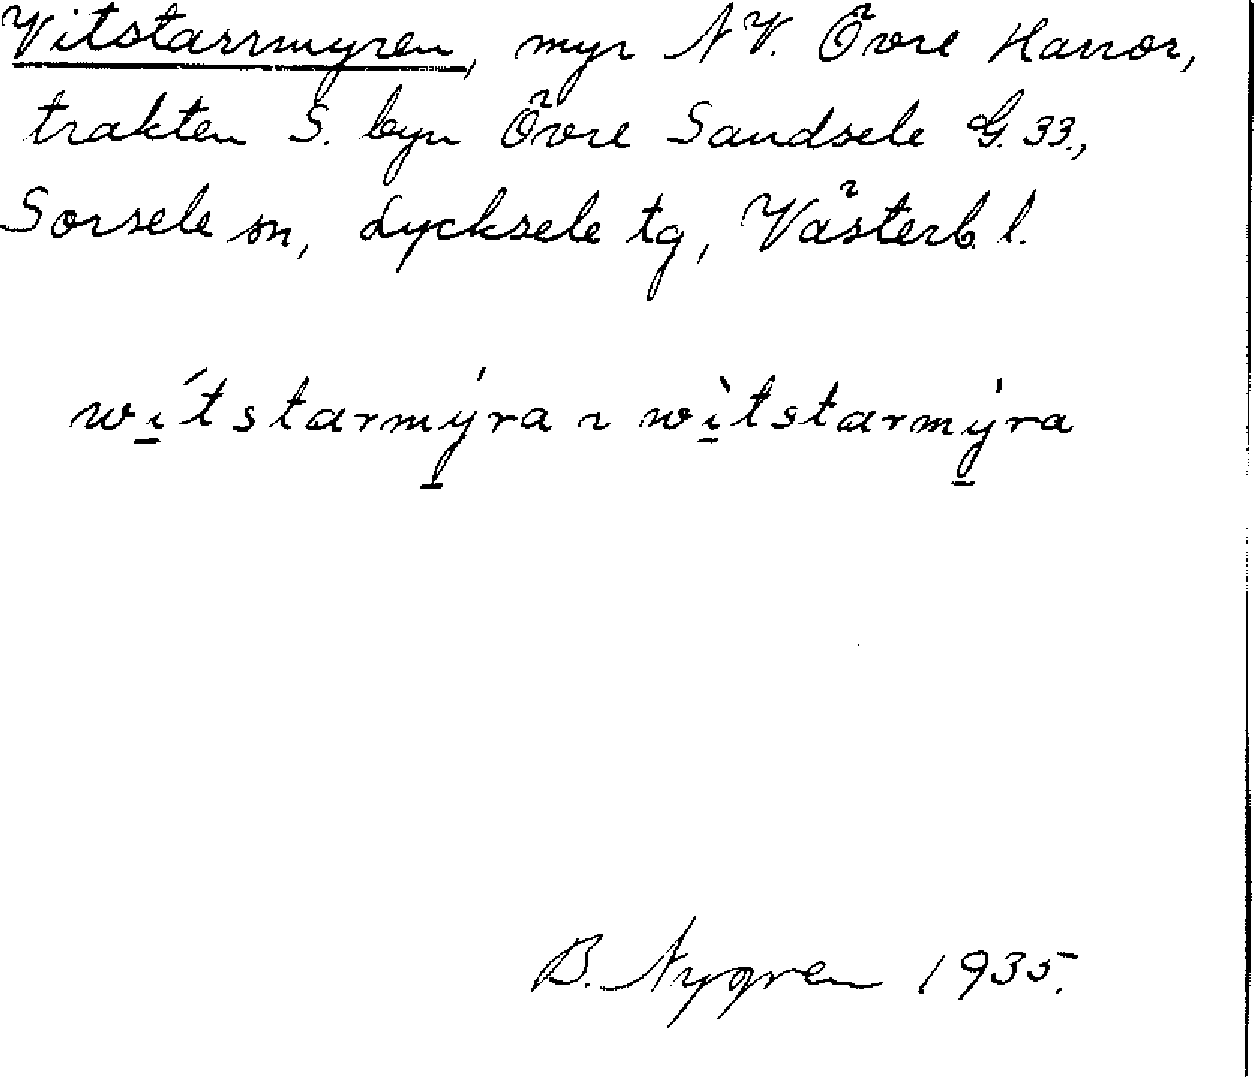 Vitstarrmyren, myr NV. Övre Harror,
trakten S. byn Övre Sandsele G. 33.,
Sorsele sn, Lycksele tg, Västerb. l.
wí̱tstarmý̱ra ~ wì̱tstarmý̱ra
B. Nygren 1935.